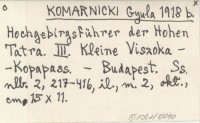 KOMARNICKI Gyula 1918 b.
Hochgebirgsführer der Hohen
Tatra. III. Kleine Viszoka -
- Kopapass. - Budapest. Ss.
nlb. 2, 217-416, il., m. 2, okł.,
cm 15 x 11.